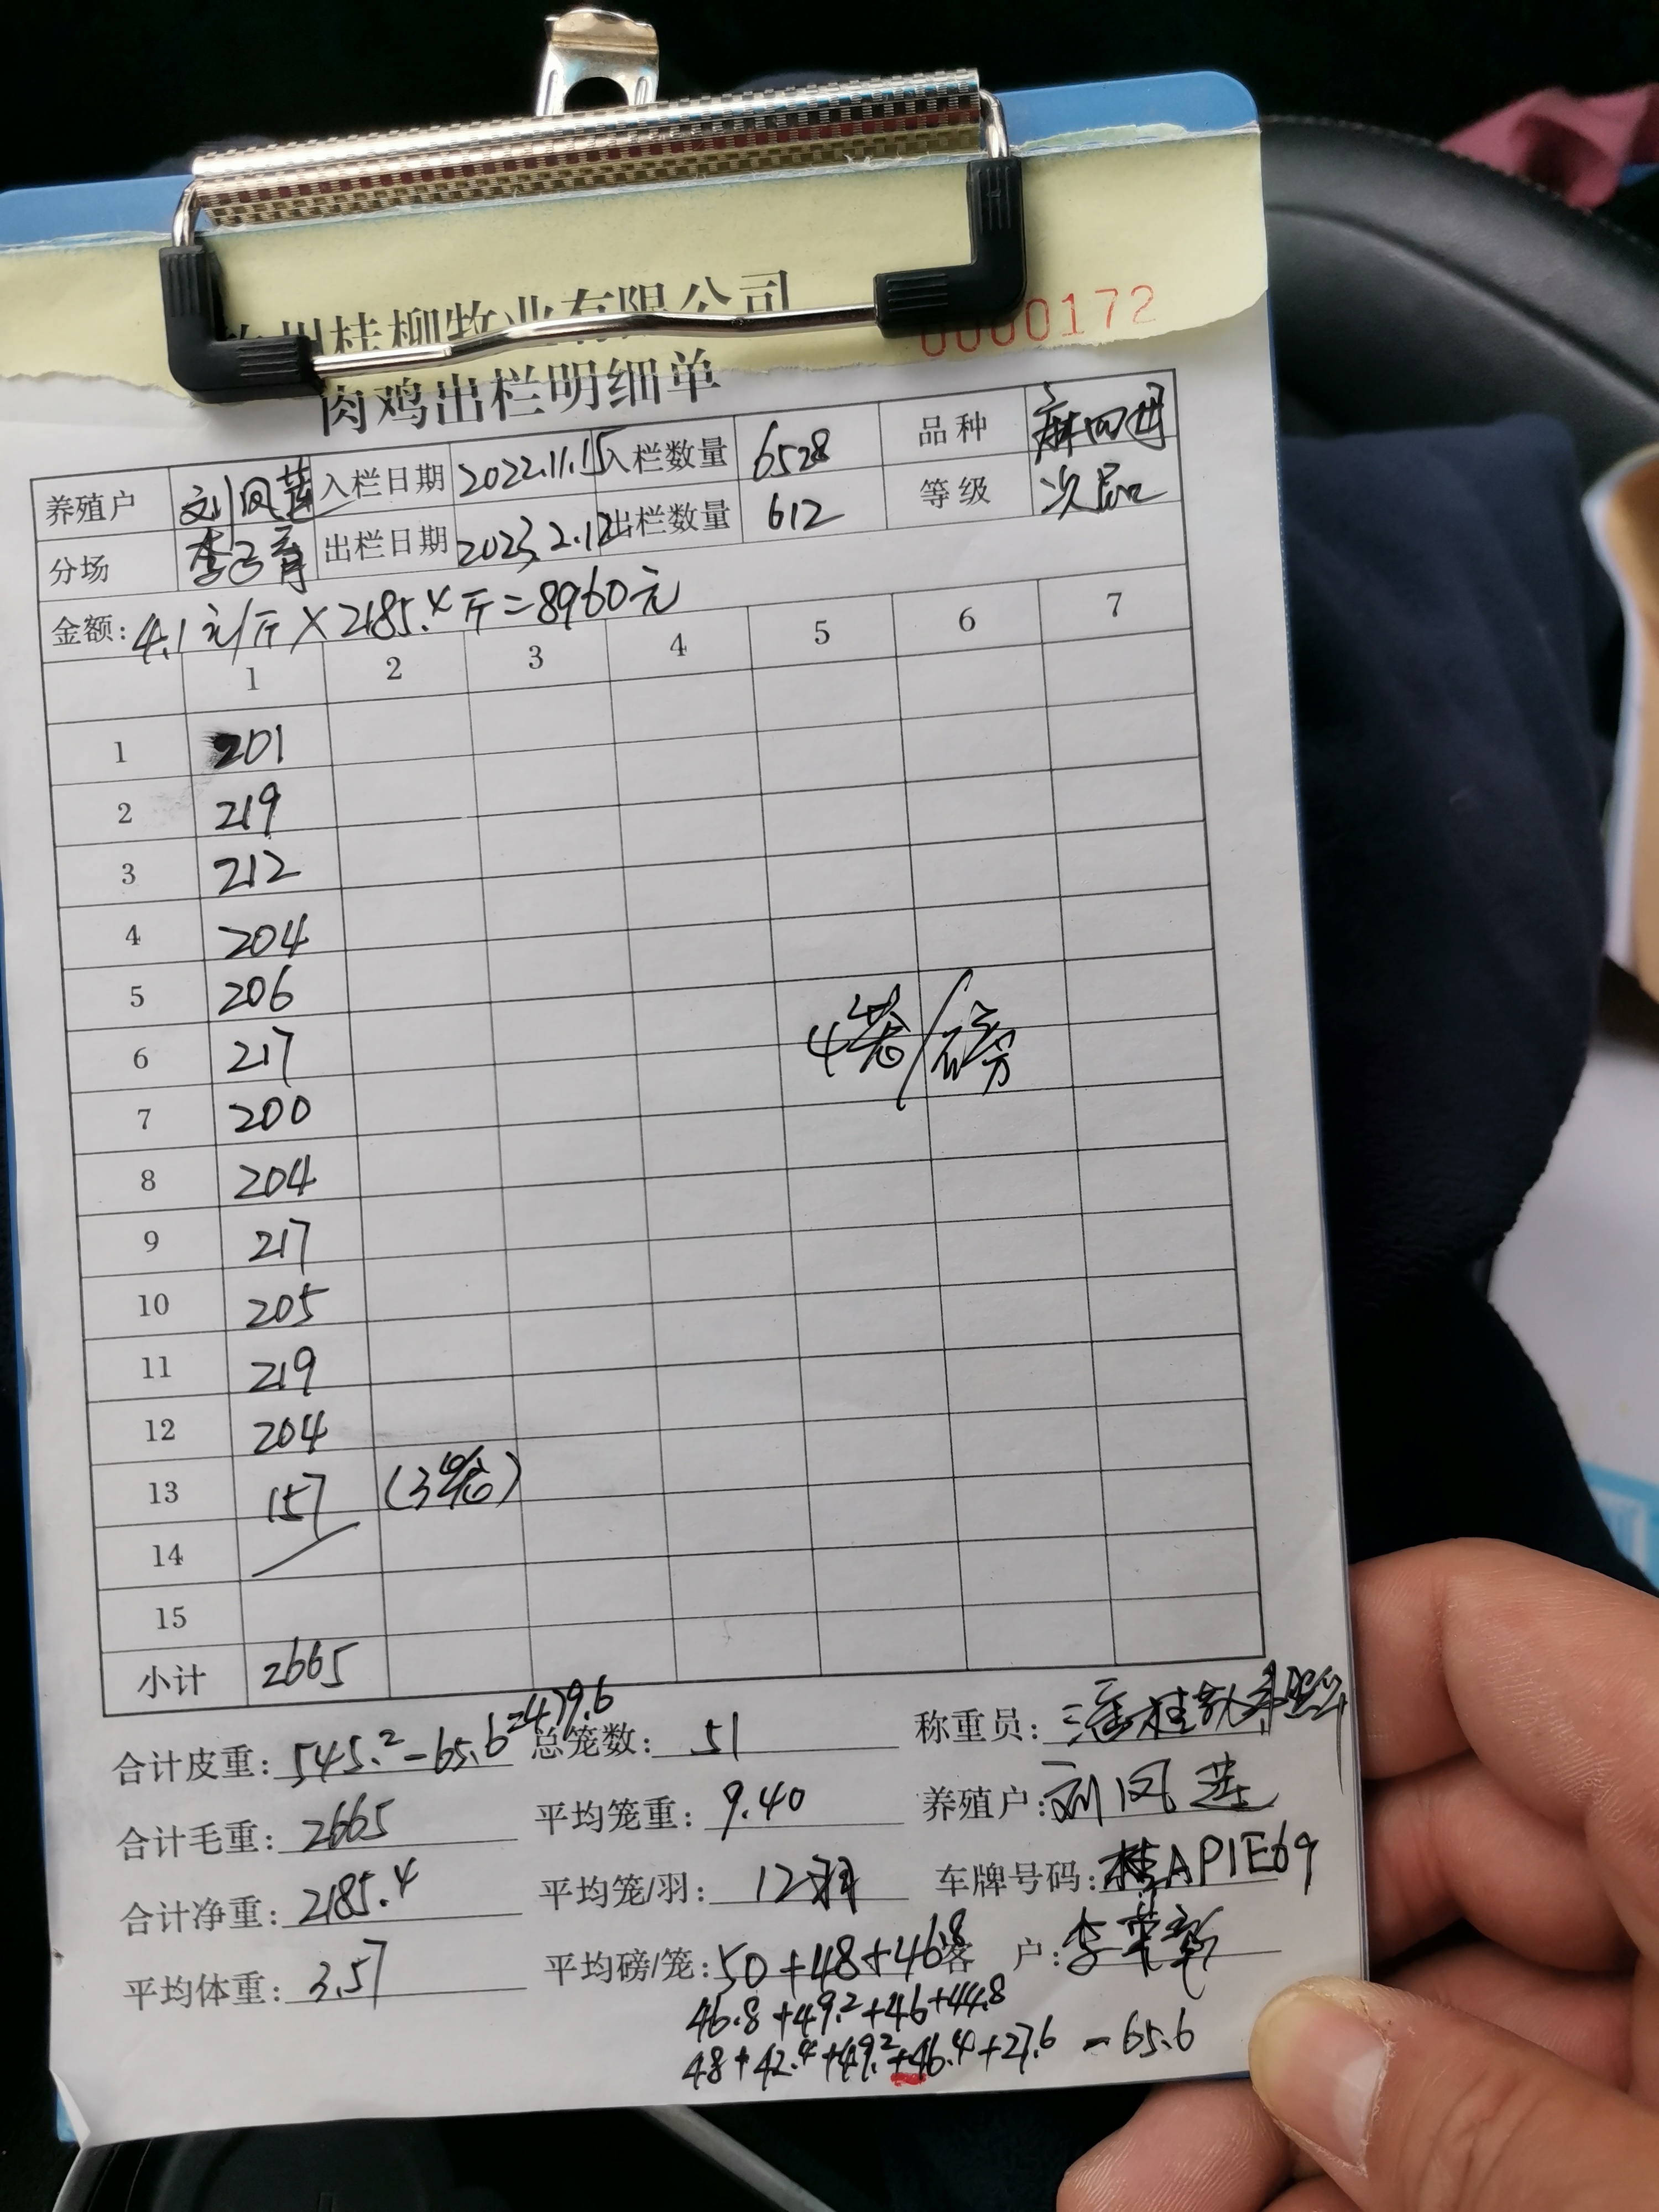 州桂柳牧业有限公司
0000172
肉鸡出栏明细单
养殖户 刘凤莲 入栏日期 2022.11.15 入栏数量 6528 品种 麻四母
分场 李子育 出栏日期 2023.2.12 出栏数量 612 等级 次品
金额: 4.1元/斤×2185.4斤=8960元
1 2 3 4 5 6 7
1 201
2 219
3 212
4 204
5 206
6 217
4笼/磅
7 200
8 204
9 217
10 205
11 219
12 204
13 157 (3笼)
14
15
小计 2665
合计皮重: 545.2-65.6=479.6 总笼数: 51 称重员:
合计毛重: 2665 平均笼重: 9.40 养殖户: 刘凤莲
合计净重: 2185.4 平均笼/羽: 12羽 车牌号码: 桂AP1E69
平均体重: 3.57 平均磅/笼: 50+48+46.8 客户: 李荣
46.8+49.2+46+44.8
48+42.4+49.2+46.4+27.6 -65.6